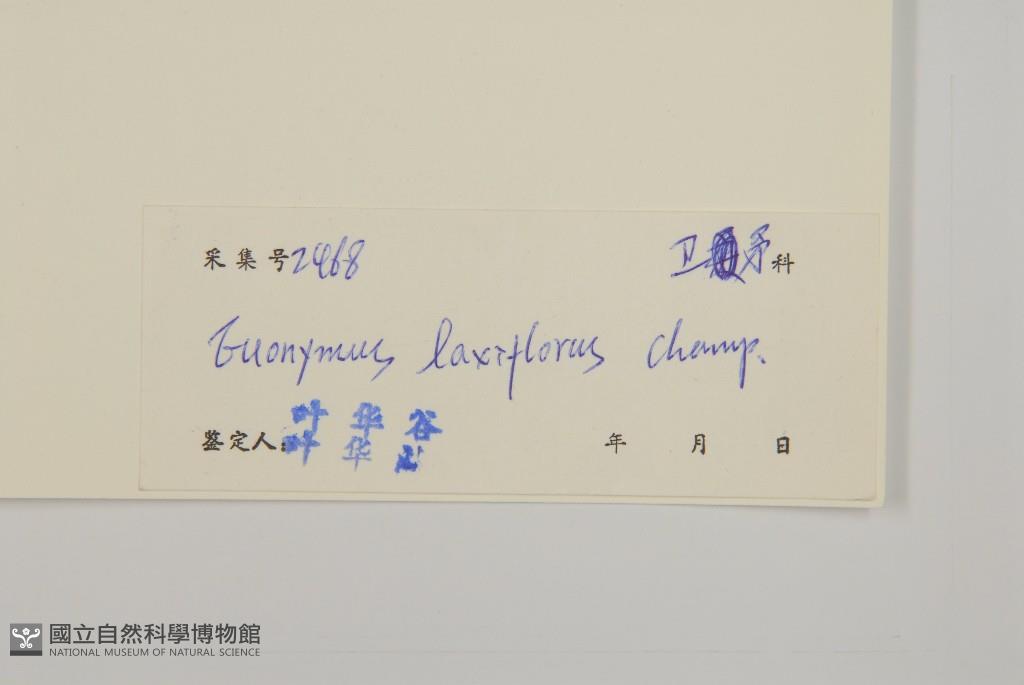 采集号2468 卫矛科
Euonymus laxiflorus Champ.
叶华谷
鉴定人:叶华
年 月 日
國立自然科學博物館
NATIONAL MUSEUM OF NATURAL SCIENCE